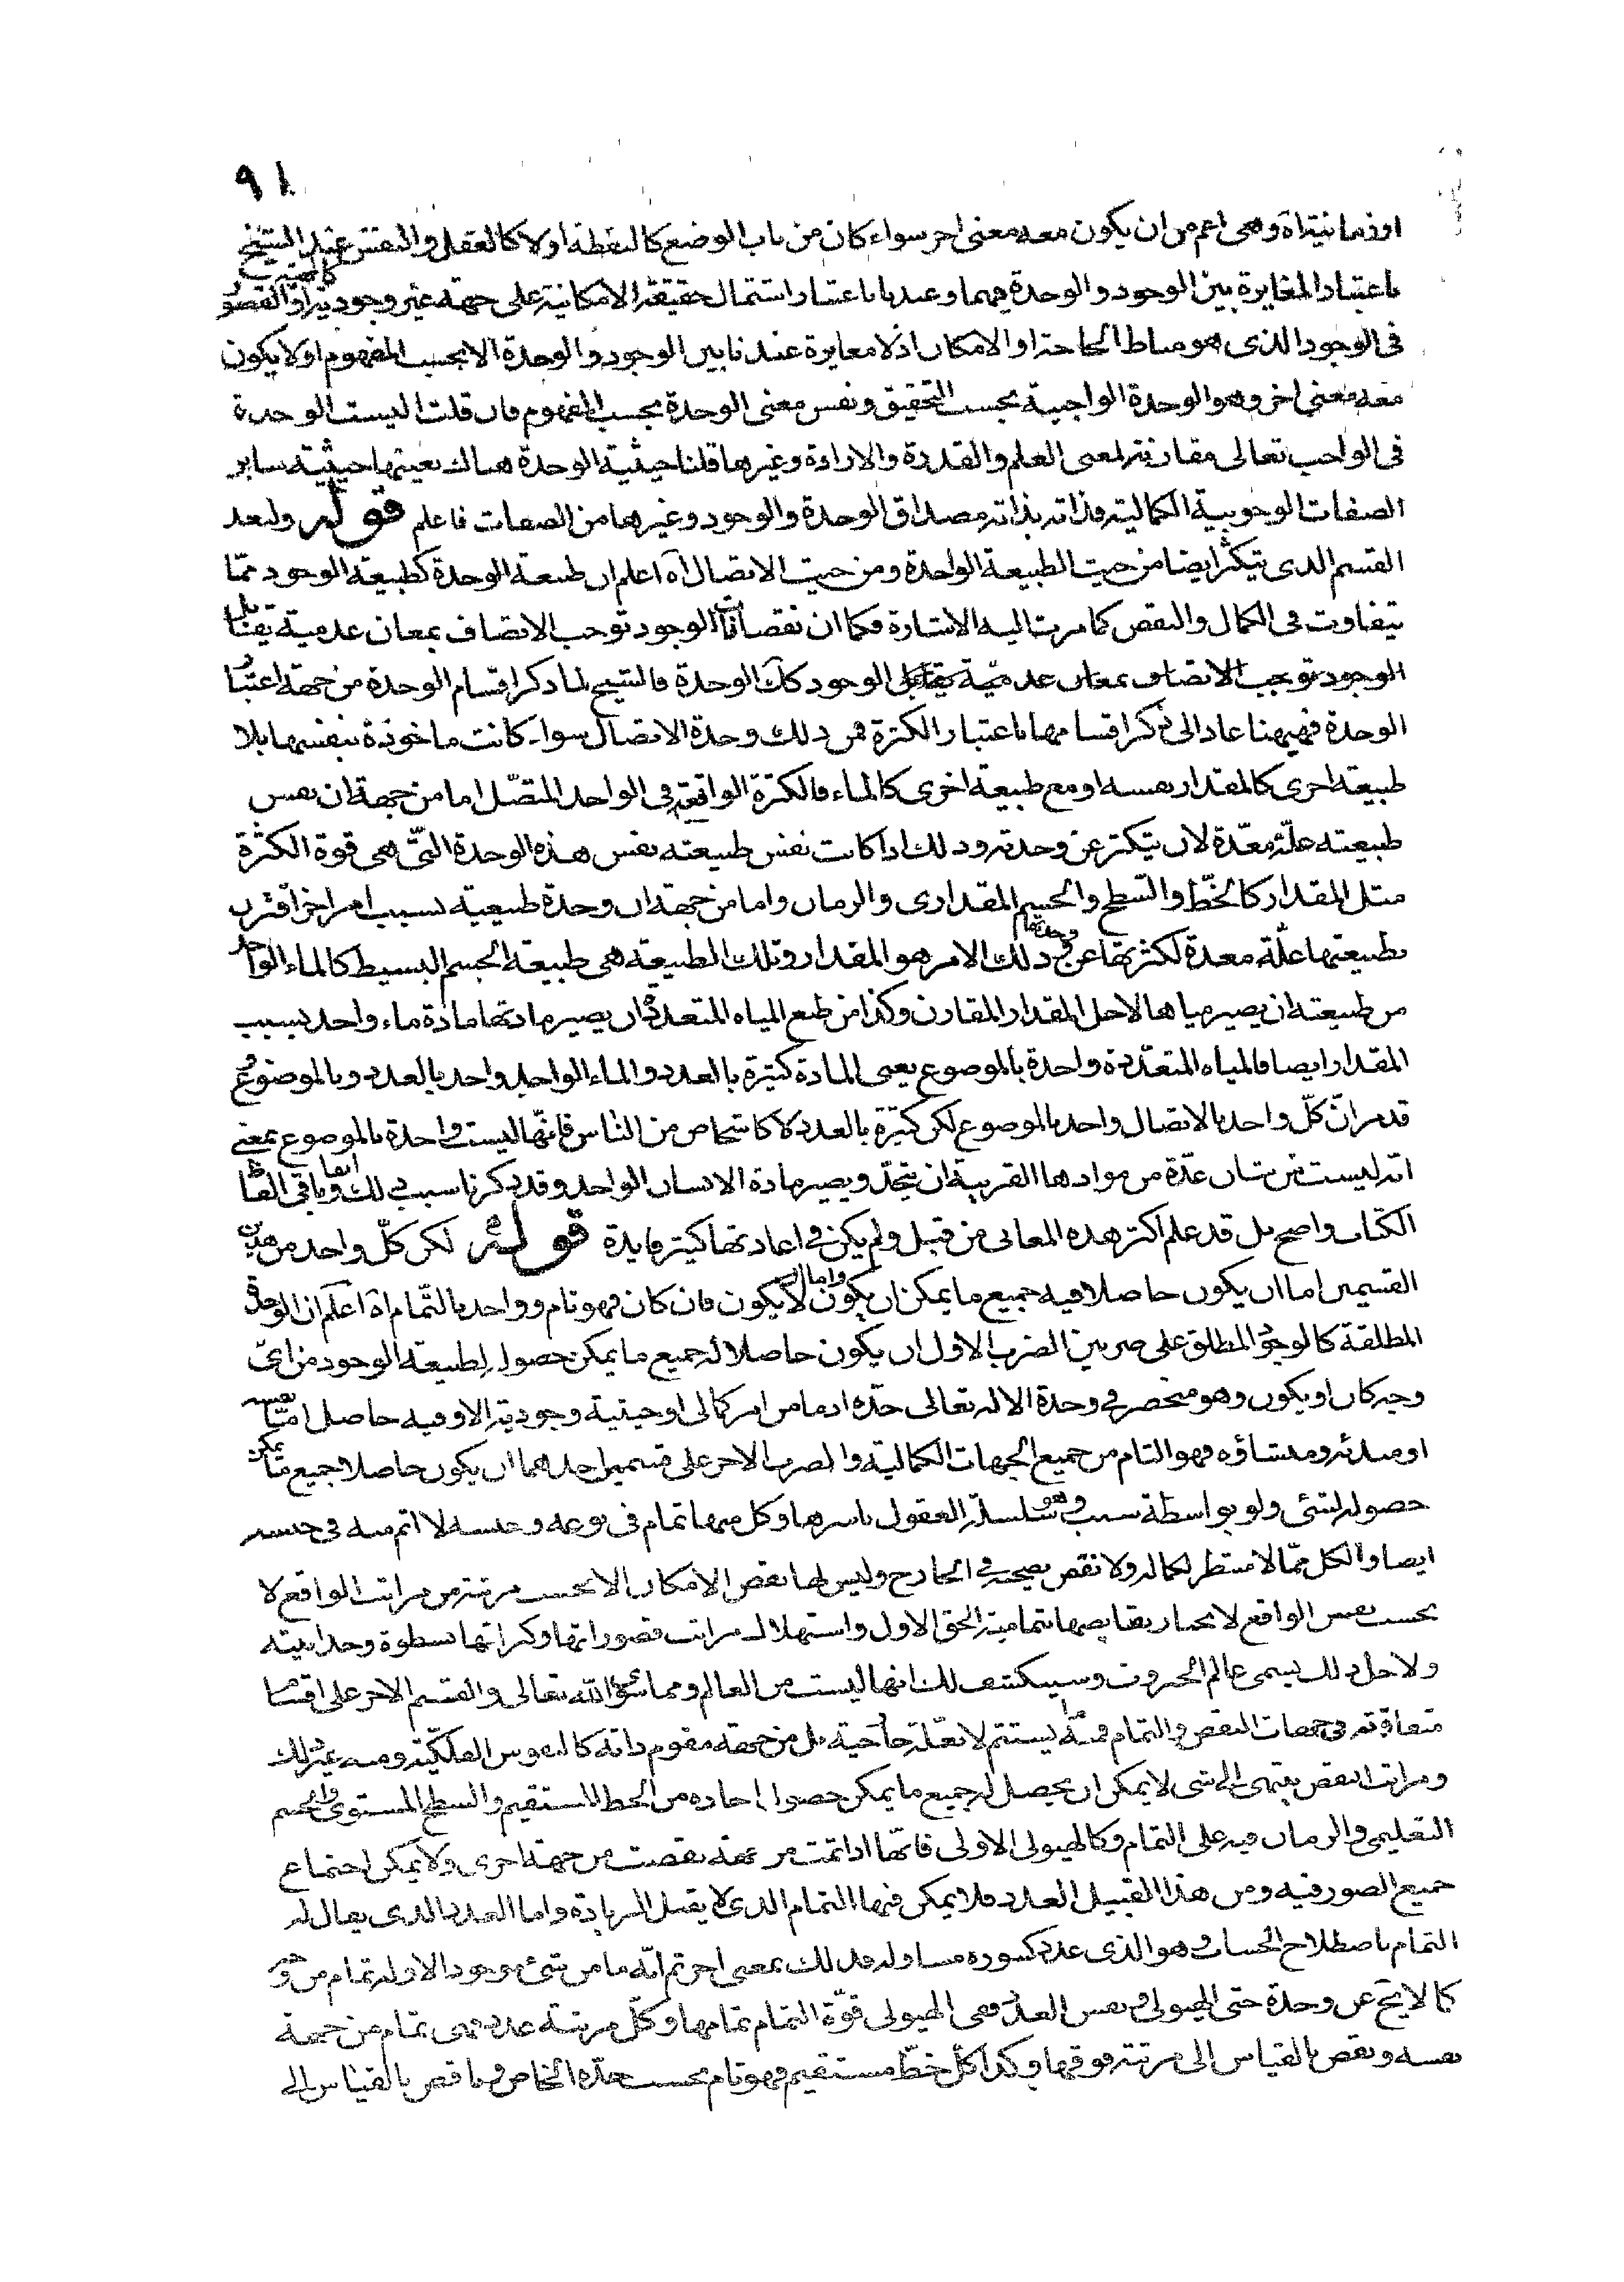 ٩١
او زمانية اه وهى اعم من ان يكون معه معنى اخر سواء كان من باب الوضع كالنقطة او لا كالعقل والنفس عند الشيخ
باعتبار المغايرة بين الوجود والوحدة فيهما وعندنا باعتبار اشتمال حقيقته الامكانية على جهة غير وجودية كالمهية او القصور
فى الوجود الذى هو مناط الحاجة او الامكان اذ لا مغايرة عندنا بين الوجود والوحدة الا بحسب المفهوم او لا يكون
معه معنى اخر وهو الوحدة الواجبية بحسب التحقيق ونفس معنى الوحدة بحسب المفهوم فان قلت اليست الوحدة
فى الواجب تعالى مقارنة لمعنى العلم والقدرة والارادة وغيرها قلنا حيثية الوحدة هناك بعينها حيثية ساير
الصفات الوجوبية الكمالية فذاته بذاته مصداق الوحدة والوجود وغيرها من الصفات فاعلم قوله ولنعد
القسم الذى يتكثر ايضا من حيث الطبيعة الواحدة ومن حيث الاتصال اه اعلم ان طبيعة الوحدة كطبيعة الوجود ممّا
يتفاوت فى الكمال والنقص كما مرت اليه الاشارة فكما ان نقصانات الوجود توجب الاتصاف بمعان عدمية يقابل
الوجود توجب الاتصاف بمعان عدمية يقابل الوجود كك الوحدة فالشيخ لما ذكر اقسام الوحدة من جهة اعتبار
الوحدة فههنا عاد الى ذكر اقسامها باعتبار الكثرة فمن ذلك وحدة الاتصال سواء كانت ماخوذة بنفسها بلا
طبيعة اخرى كالمقدار نفسه او مع طبيعة اخرى كالماء فالكثرة الواقعة فى الواحد المتصّل اما من جهة ان نفس
طبيعته علّة معدّة لان يتكثر عن وحدته وذلك اذا كانت نفس طبيعته نفس هذه الوحدة التّى هى قوة الكثرة
مثل المقدار كالخطّ والسّطح والجسم المقدارى والزمان واما من جهة ان وحدة طبيعية بسبب امر اخر اقترن
بطبيعتها علّة معدة لكثرتها عن وحدتها وذلك الامر هو المقدار وتلك الطبيعة هى طبيعة الجسم البسيط كالماء الواحد
من طبيعته ان يصير مياها لاجل المقدار المقارن وكذا من طبع المياه المتعددة ان يصير مادتها مادة ماء واحد بسبب
المقدار ايضا فالمياه المتعدّدة واحدة بالموضوع يعنى المادة كثيرة بالعدد والماء الواحد واحد بالعدد وبالموضوع
قد مر انّ كلّ واحد بالاتصال واحد بالموضوع لكن كثيرة بالعدد لا كاشخاص من الناس فانّها ليست واحدة بالموضوع بمعنى
انه ليست من شان عدّة من موادها القريبة ان يتحدّ ويصير مادة الانسان الواحد وقد ذكرنا سبب ذلك انفا وباقى الفاظ
الكتاب واضح بل قد علم اكثر هذه المعانى من قبل ولم يكن فى اعادتها كثير فايدة قوله لكن كلّ واحد من هذين
القسمين اما ان يكون حاصلا فيه جميع ما يمكن ان يكون واما ان لا يكون فان كان فهو تام وواحد بالتّمام اه اعلم ان الوحدة
المطلقة كالوجود المطلق على ضربين الضرب الاول ان يكون حاصلا له جميع ما يمكن حصوله لطبيعة الوجود من اىّ
وجه كان او يكون وهو منحصر فى وحدة الاله تعالى جدّه اذ ما من امر كمالى او حيثية وجودية الا وفيه حاصل امّا بنفسه
او مبدئه ومنشاؤه فهو التام من جميع الجهات الكمالية والضرب الاخر على قسمين احدهما ان يكون حاصلا جميع ما يمكن
حصوله لشئى ولو بواسطة سبب وهو سلسلة العقول باسرها وكل منها تمام فى نوعه وجنسه لا اتم منه فى جنسه
ايضا والكل ممّا لا منتظر لكماله ولا نقص يصحبه فى الخارج وليس لها نقص الامكان الا بحسب مرتبة من مراتب الواقع لا
بحسب نفس الواقع لانجبار نقايصها بتمامية الحق الاول واستهلاك مراتب قصوراتها وكثراتها بسطوة وحدانيته
ولاجل ذلك يسمى عالم الجبروت وسينكشف لك انها ليست من العالم ومما سوى الله تعالى والقسم الاخر على اقسام
متفاوتة فى جهات النقص والتمام فمنه ما يستتم لا بعلّة خارجية بل من جهة مقوم ذاته كالنفوس الفلكية ومنه غير ذلك
ومراتب النقص ينتهى الى شى لا يمكن ان يحصل له جميع ما يمكن حصول احاده من الخط المستقيم والسطح المستوى والجسم
التعليمى والزمان فيه على التمام وكالهيولى الاولى فانّها اذا تمت من جهة نقصت من جهة اخرى ولا يمكن اجتماع
جميع الصور فيه ومن هذا القبيل العدد فلا يمكن فيها التمام الذى لا يقبل الزيادة واما العدد الذى يقال له
التمام باصطلاح الحساب وهو الذى عدد كسوره مساو له فذلك بمعنى اخر ثم انّه ما من شئ موجود الا وله تمام من جهة
كما لا يخ عن وحدة حتى الهيولى ونفس العدد ففى الهيولى قوّة التمام تمامها وكل مرتبة عدد هى تمام من جهة
نفسه ونقص بالقياس الى مرتبة فوقها وكذا كل خطّ مستقيم فهو تام بحسب حدّه الخاص وناقص بالقياس الى